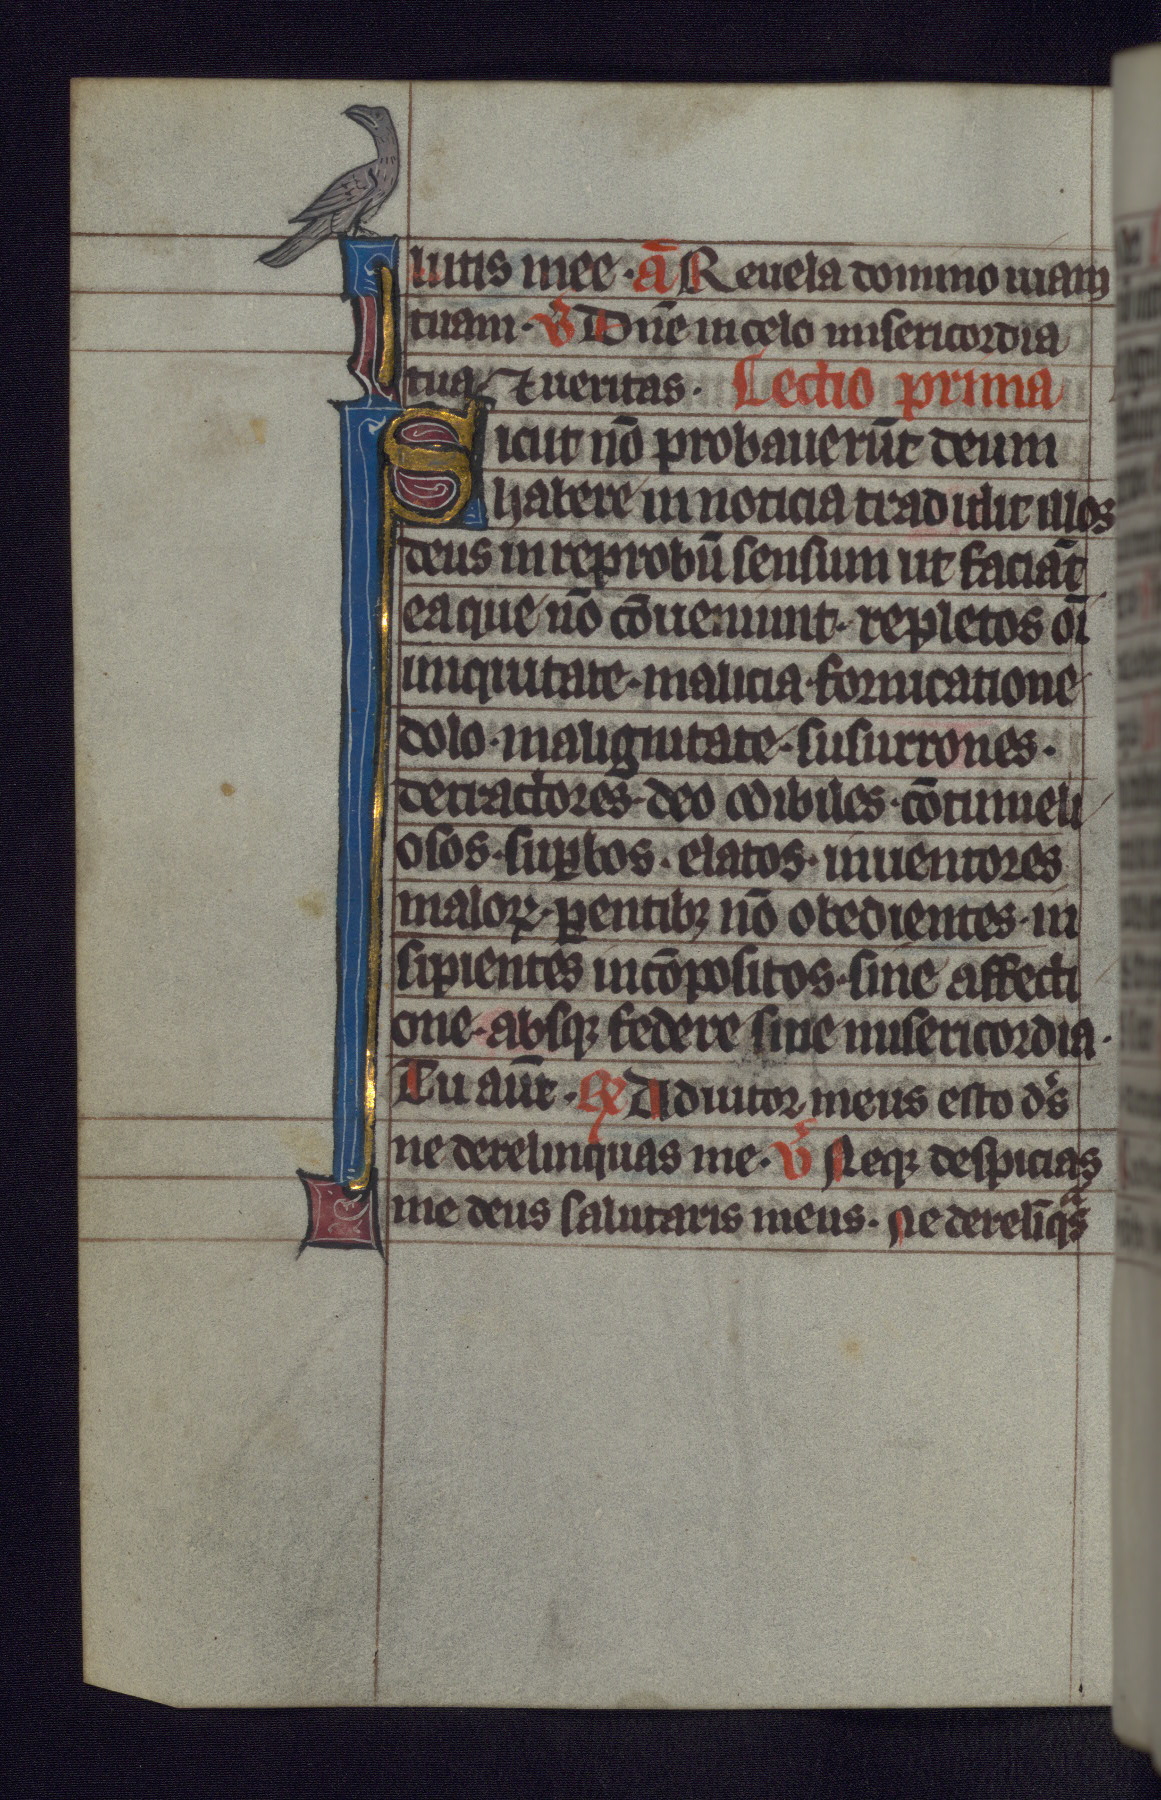 lutis mee · a̅ Reuela domino uiam
tuam · v̅ Dn̅e in celo misericordia
tua · ⁊ ueritas · Lectio prima
Sicut no̅ probaueru̅t deum
habere in noticia tradidit illos
deus in reprobu̅ sensum ut facia̅t
ea que no̅ co̅ueniunt · repletos oi̅
iniquitate · malicia · fornicatione
dolo · malignitate · susurrones ·
detractores · deo odibiles · co̅tumeli
osos · sup̲bos · elatos · inuentores
maloꝝ · ꝑentibꝫ no̅ obedientes · in
sipientes inco̅positos · sine affecti
one · absqꝫ federe sine misericordia ·
Tu aut̅ · ℟ Adiutor meus esto d̅s
ne derelinquas me · v̅ Neqꝫ despicias
me deus salutaris meus · Ne dereli̅qᵃs